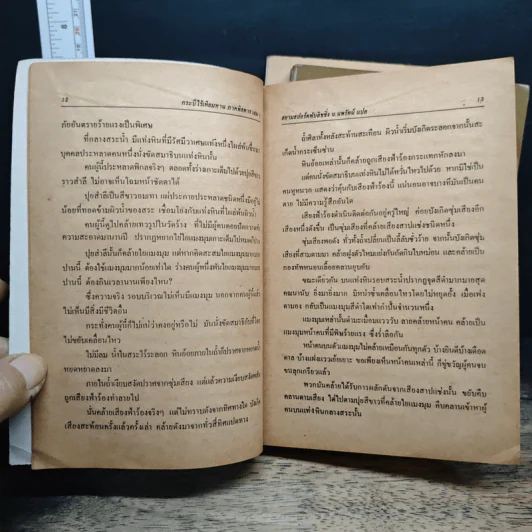 12 กระบี่ไร้เทียมทาน ภาคพิสดาร เล่ม
ภัยอันตรายร้ายแรงเป็นพิเศษ
ที่กลางสระน้ำ มีแท่งหินที่มีรัศมีวาเศษแท่งหนึ่งโผล่พ้นขึ้นมา
บุคคลประหลาดคนหนึ่งนั่งขัดสมาธิบนแท่งหินนั้น
คนผู้นี้ประหลาดพิกลจริงๆ ตลอดทั้งร่างกายเต็มไปด้วยปุยสีขาว
ราวสำลี ไม่อาจเห็นโฉมหน้าชัดตาได้
ปุยสำลีเป็นสีขาวอมเทา แผ่ประกายประหลาดชนิดหนึ่งมีอยู่ไม่
น้อยที่ทอดข้ามผิวน้ำของสระ เชื่อมโยงกับแท่งหินที่โผล่พ้นผิวน้ำ
คนผู้นี้ดูไปคล้ายเทวรูปในวัดร้าง ที่ไม่มีผู้คนคอยปัดกวาด
ความสะอาดมานานปี ปรากฏหยากไย่ใยแมงมุมเกาะเต็มไปหมด
ปุยสำลีนั้นก็คล้ายใยแมงมุม แต่หากคิดสะสมใยแมงมุมมากมาย
ปานนี้ ต้องใช้แมงมุมมากน้อยเท่าใด ร่างคนผู้หนึ่งพันใยแมงมุมมากมาย
ปานนี้ ต้องกินเวลานานเพียงไหน?
ซึ่งความจริง รอบบริเวณไม่เห็นมีแมงมุม นอกจากคนผู้นี้แล้ว
ไม่เห็นมีสิ่งมีชีวิตอื่น
กระทั่งคนผู้นี้ก็ไม่แน่ว่าคงอยู่หรือไม่ มันนั่งขัดสมาธิกับที่โดย
ไม่ขยับเคลื่อนไหว
ไม่มีลม น้ำในสระไร้ระลอก หินย้อยภายในถ้ำก็ปราศจากหยดน้ำ
หยดหยาดลงมา
ภายในถ้ำเงียบสงัดปราศจากซุ่มเสียง แต่แล้วความเงียบสงัดพลัน
ถูกเสียงฟ้าร้องทำลายไป
นั่นคล้ายเสียงฟ้าร้องจริงๆ แต่ไม่ทราบดังจากทิศทางใด บังเกิด
เสียงสะท้อนครั้งแล้วครั้งเล่า คล้ายดังมาจากทั่วสี่ทิศแปดทาง
สยามสปอร์ตพับลิชชิ่ง น.นพรัตน์ แปล 13
ถ้ำศิลาทั้งหลังสะท้านสะเทือน ผิวน้ำเริ่มบังเกิดระลอกจากนั้นสะ
เก็ดน้ำกระเซ็นซ่าน
หินย้อยเหล่านั้นก็คล้ายถูกเสียงฟ้าร้องกระแทกหักลงมา
แต่คนนั่งขัดสมาธิบนแท่งหินไม่ได้ไหวหวั่นไปด้วย หากมิใช่เป็น
คนหูหนวก แสดงว่าคุ้นกับเสียงฟ้าร้องนี้ แน่นอนอาจบางทีมันเป็นคน
ตาย ไม่มีความรู้สึกอันใด
เสียงฟ้าร้องดำเนินติดต่อกันอยู่ครู่ใหญ่ ค่อยบังเกิดซุ่มเสียงอีก
เสียงหนึ่งดังขึ้น เป็นซุ่มเสียงที่คล้ายเสียงสาปแช่งชนิดหนึ่ง
ซุ่มเสียงพอดัง ทั่วทั้งถ้ำเปลี่ยนเป็นลี้ลับชั่วร้าย จากนั้นบังเกิดซุ่ม
เสียงที่สามตามมา คล้ายฝูงตัวไหมแย่งกันกัดกินใบหม่อน และคล้ายเป็น
กองทัพหนอนเลื้อยคลานยุบยับ
ขณะเดียวกัน บนแท่งหินรอบสระน้ำปรากฏจุดสีดำมากมายสุด
คณานับ ยิ่งมายิ่งมาก มิหนำซ้ำเคลื่อนไหวโดยไม่หยุดยั้ง เมื่อเพ่ง
ตามอง กลับเป็นแมงมุมสีดำโตเท่ากำปั้นจำนวนหนึ่ง
แมงมุมเหล่านั้นดำมะเมื่อมแวววับ ลายคล้ายหน้าคน คล้ายเป็น
แมงมุมหน้าคนที่มีพิษร้ายแรง ซึ่งร่ำลือกัน
หน้าคนบนตัวแมงมุมไม่คล้ายเหมือนกันทุกตัว บ้างยินดีบ้างเดือด
ดาล บ้างแผ่แววเย้ยเยาะ ขอเพียงเห็นหน้าคนเหล่านี้ ก็ขู่ขวัญผู้คนจน
ขนลุกเกรียวแล้ว
พวกมันคล้ายได้รับการผลักดันจากเสียงสาปแช่งนั้น ขยับคืบ
คลานตามเสียง ไต่ไปตามปุยสีขาวที่คล้ายใยแมงมุม คืบคลานเข้าหาผู้
คนบนแท่งหินกลางสระนั้น